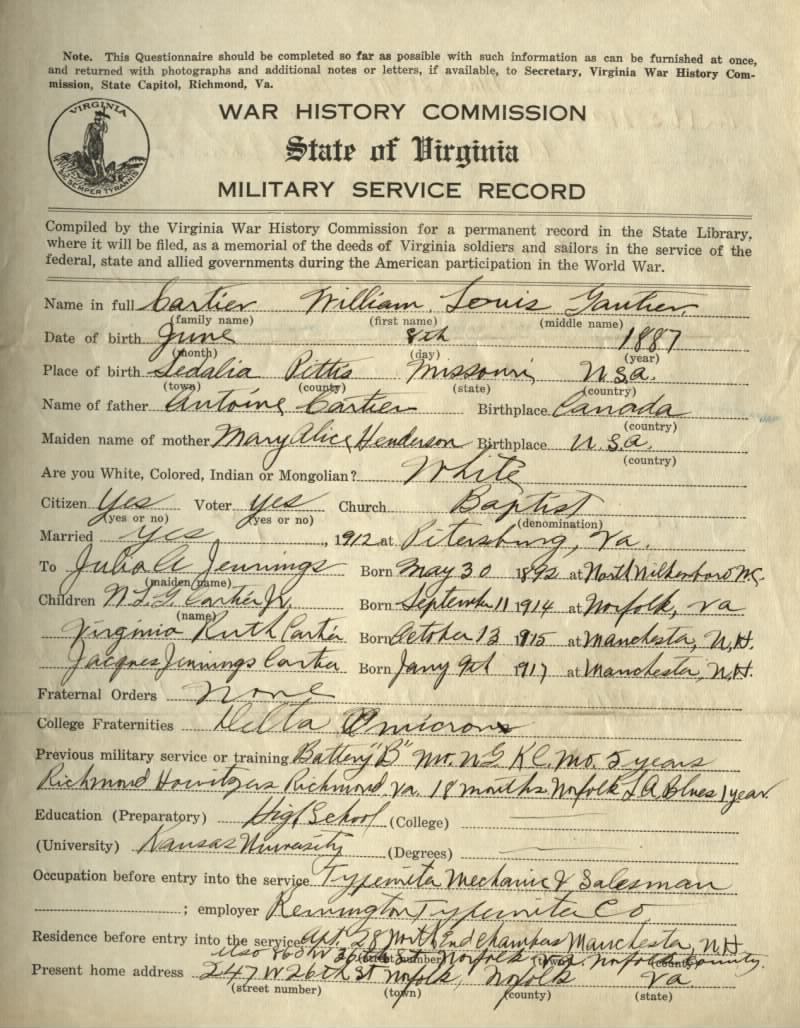 Note. This Questionnaire should be completed so far as possible with such information as can be furnished at once,
and returned with photographs and additional notes or letters, if available, to Secretary, Virginia War History Com-
mission, State Capitol, Richmond, Va.
VIRGINIA
SIC SEMPER TYRANNIS
WAR HISTORY COMMISSION
State of Virginia
MILITARY SERVICE RECORD
Compiled by the Virginia War History Commission for a permanent record in the State Library,
where it will be filed, as a memorial of the deeds of Virginia soldiers and sailors in the service of the
federal, state and allied governments during the American participation in the World War.
Name in full Cartier William Louis Gautier
(family name) (first name) (middle name)
Date of birth June 8th 1887
(month) (day) (year)
Place of birth Sedalia Pettis Missouri U.S.a.
(town) (county) (state) (country)
Name of father Antoine Cartier Birthplace Canada
(country)
Maiden name of mother Mary Alice Henderson Birthplace U.S.a.
(country)
Are you White, Colored, Indian or Mongolian? White
Citizen yes Voter yes Church Baptist
(yes or no) (yes or no) (denomination)
Married yes, 1912 at Petersburg, Va.
To Julia A Jennings Born May 30 1892 at North Wilkesboro N.C.
(maiden name)
Children W.L.G. Cartier Jr. Born September 11 1914 at Norfolk, Va
(name)
Virginia Ruth Cartier Born October 13 1915 at Manchester, N.H.
Jacques Jennings Cartier Born Jany 9th 1917 at Manchester, N.H.
Fraternal Orders None
College Fraternities Delta Omicron
Previous military service or training Battery "B" Mo. N G K.C. Mo. 5 years
Richmond Howitzers Richmond, Va. 18 months. Norfolk L A Blues 1 year.
Education (Preparatory) High School (College)
(University) Kansas University (Degrees)
Occupation before entry into the service Typewriter Mechanic & Salesman
; employer Remington Typewriter Co
Residence before entry into the service Apt. 28 North End Chambers Manchester, N.H
Also W 36th St. Norfolk Norfolk County.
Present home address 247 W 26th St Norfolk, Norfolk Va
(street number) (town) (county) (state)